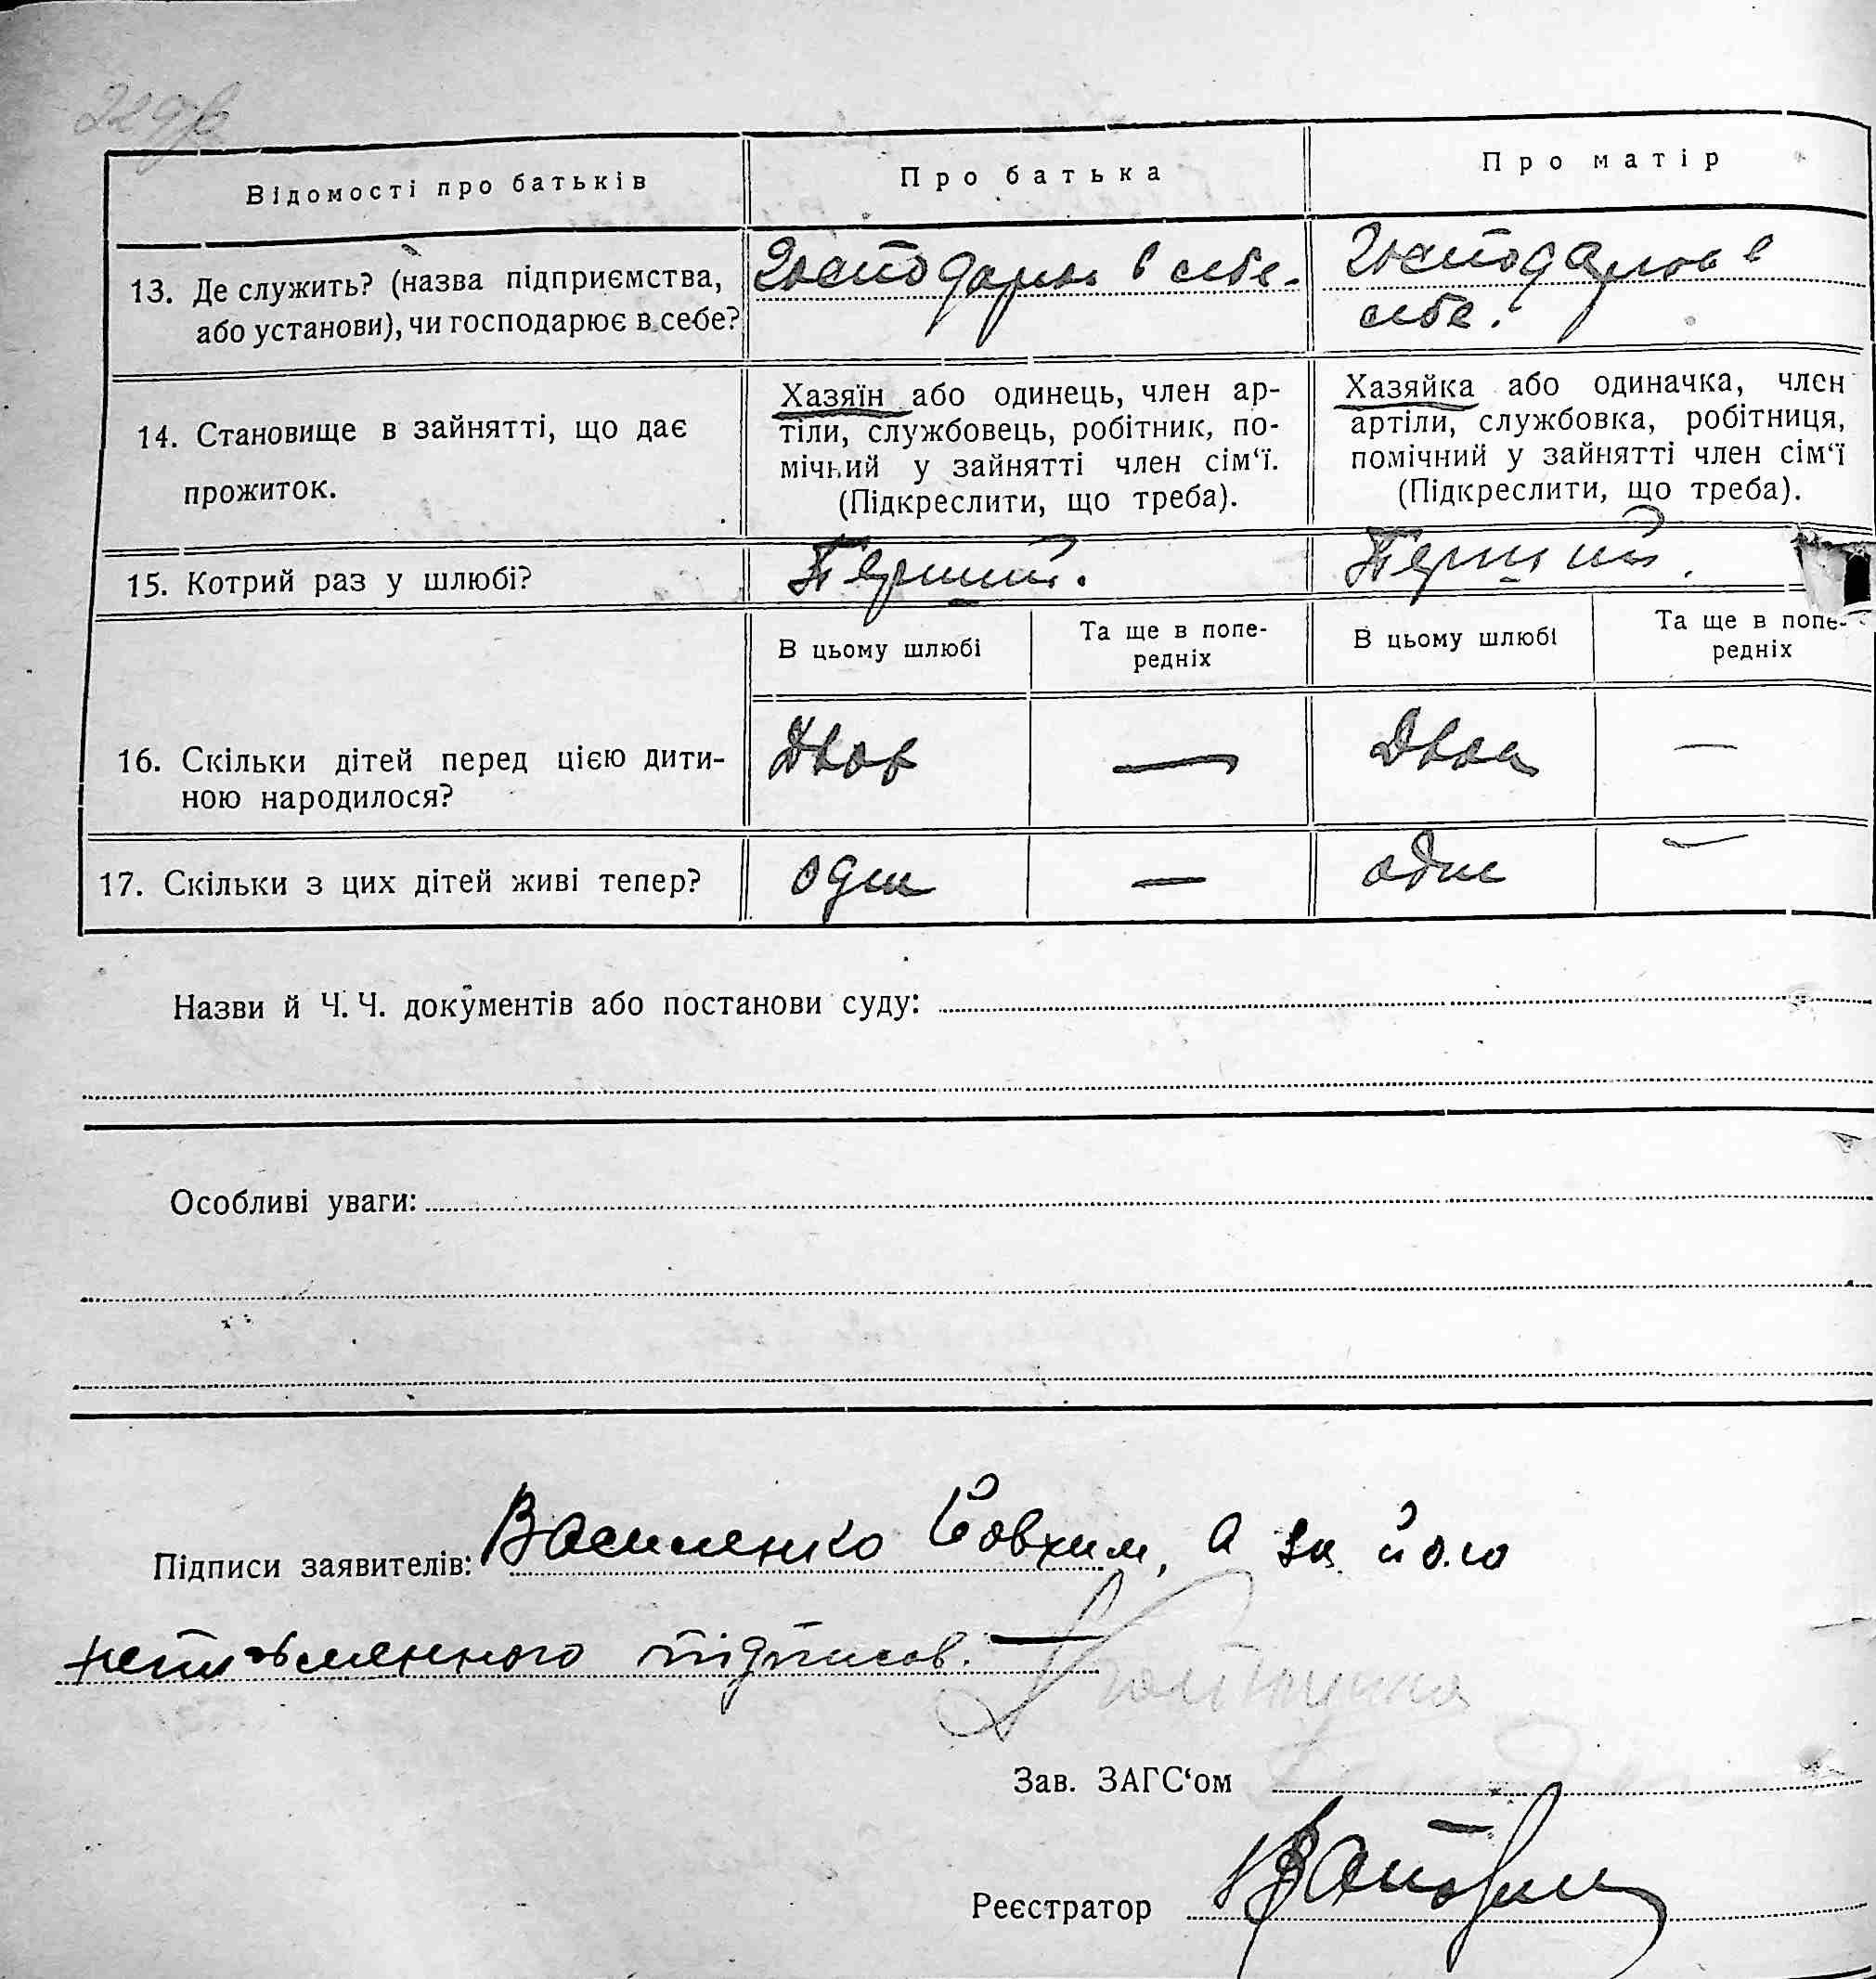 Відомості про батьків
Про батька
Про матір
13. Де служить? (назва підприємства,
або установи), чи господарює в себе?
Господарює в себе.
Господарює в
себе.
14. Становище в зайнятті, що дає
прожиток.
Хазяїн або одинець, член ар-
тіли, службовець, робітник, по-
мічний у зайнятті член сім‘ї.
(Підкреслити, що треба).
Хазяйка або одиначка, член
артіли, службовка, робітниця,
помічний у зайнятті член сім‘ї
(Підкреслити, що треба).
15. Котрий раз у шлюбі?
Перший.
Перший.
В цьому шлюбі
Та ще в попе-
редніх
В цьому шлюбі
Та ще в попе-
редніх
16. Скільки дітей перед цією дити-
ною народилося?
Двоє
—
Двоє
—
17. Скільки з цих дітей живі тепер?
один
—
один
—
Назви й Ч. Ч. документів або постанови суду:
Особливі уваги:
Підписи заявителів: Василенко Йовхим, а за його
неписьменного підписав. —
Зав. ЗАГС‘ом
Реєстратор